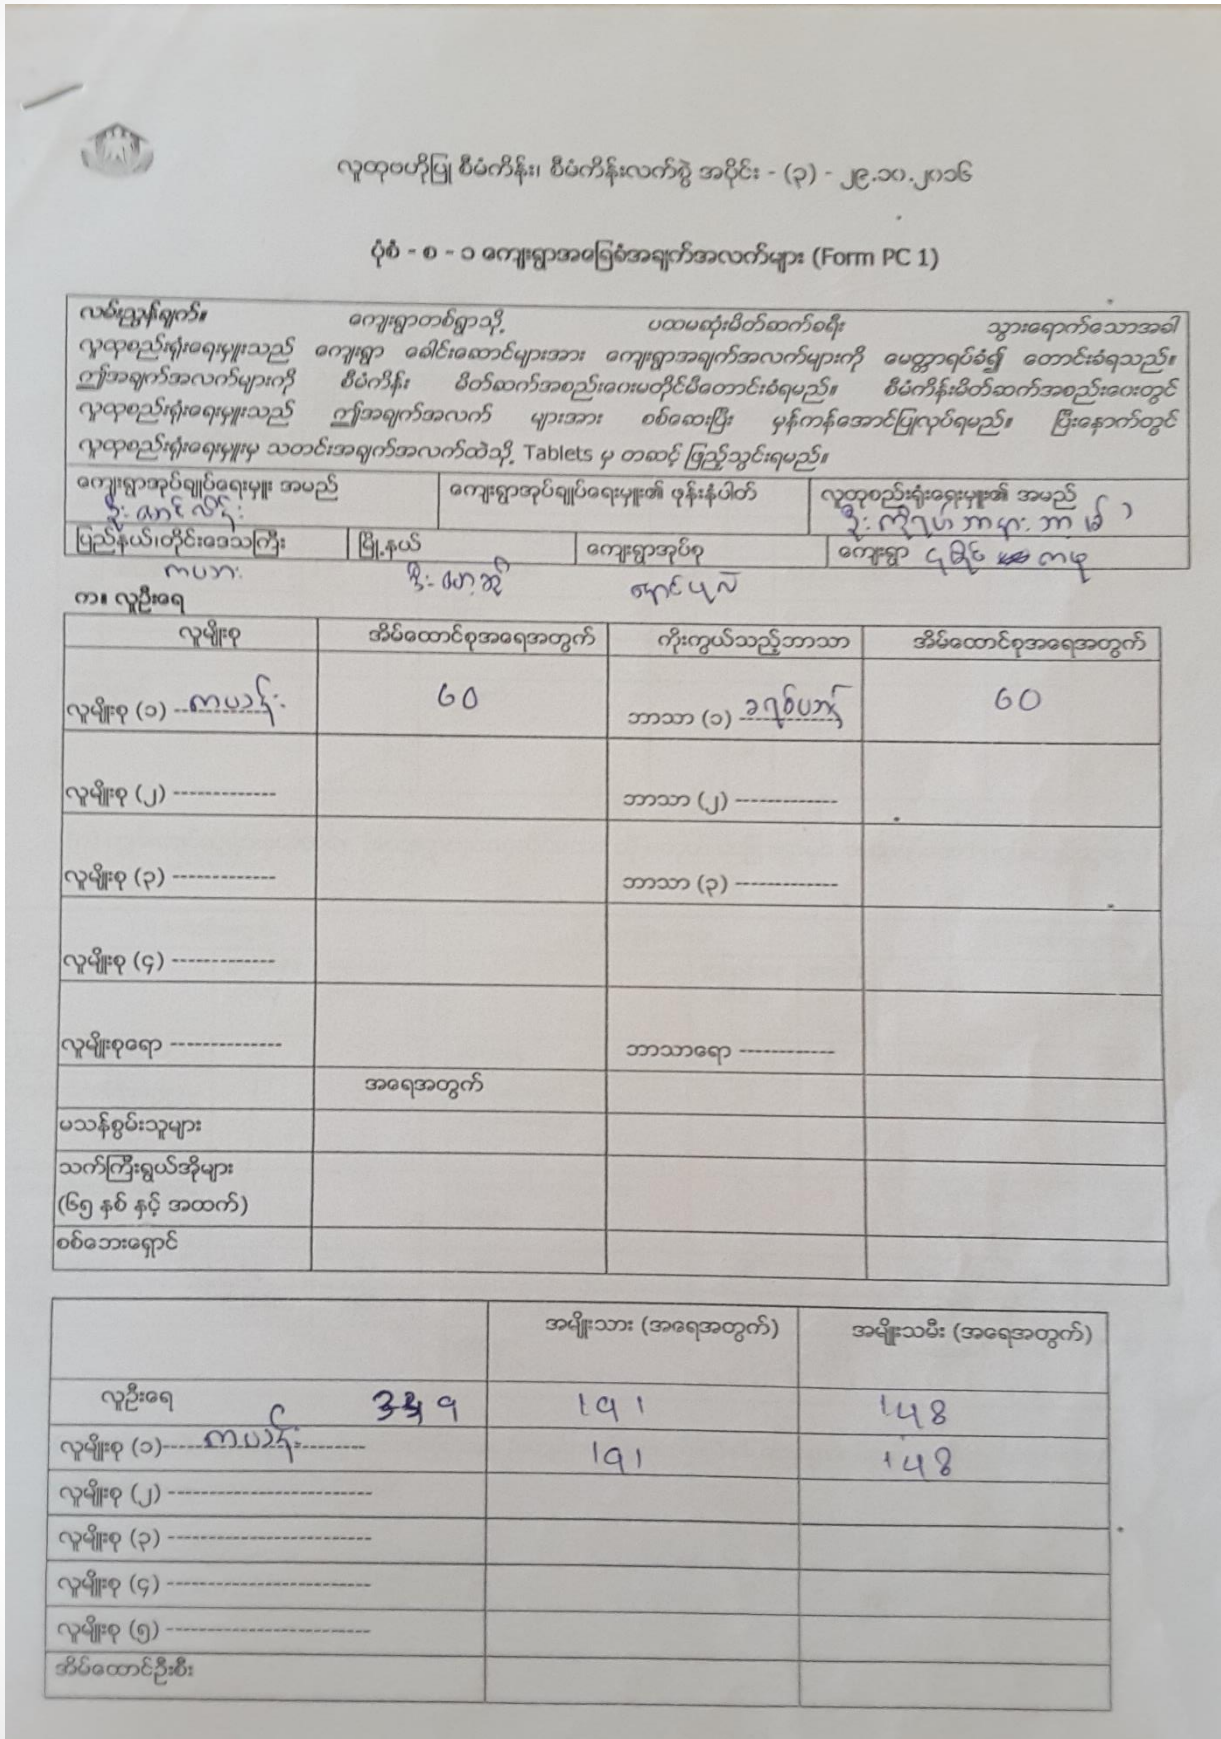 လူထုဗဟိုပြု စီမံကိန်း၊ စီမံကိန်းလက်စွဲ အပိုင်း - (၃) - ၂၉.၁၀.၂၀၁၆
ပုံစံ - စ - ၁ ကျေးရွာအခြေခံအချက်အလက်များ (Form PC 1)
လမ်းညွှန်ချက်။ ကျေးရွာတစ်ရွာသို့ ပထမဆုံးမိတ်ဆက်ခရီး သွားရောက်သောအခါ
လူထုစည်းရုံးရေးမှူးသည် ကျေးရွာ ခေါင်းဆောင်များအား ကျေးရွာအချက်အလက်များကို မေတ္တာရပ်ခံ၍ တောင်းခံရသည်။
ဤအချက်အလက်များကို စီမံကိန်း မိတ်ဆက်အစည်းဝေးမတိုင်မီတောင်းခံရမည်။ စီမံကိန်းမိတ်ဆက်အစည်းဝေးတွင်
လူထုစည်းရုံးရေးမှူးသည် ဤအချက်အလက် များအား စစ်ဆေးပြီး မှန်ကန်အောင်ပြုလုပ်ရမည်။ ပြီးနောက်တွင်
လူထုစည်းရုံးရေးမှူးမှ သတင်းအချက်အလက်ထဲသို့ Tablets မှ တဆင့် ဖြည့်သွင်းရမည်။
ကျေးရွာအုပ်ချုပ်ရေးမှူး အမည် ကျေးရွာအုပ်ချုပ်ရေးမှူး၏ ဖုန်းနံပါတ် လူထုစည်းရုံးရေးမှူး၏ အမည်
ပြည်နယ်၊တိုင်းဒေသကြီး မြို့နယ် ကျေးရွာအုပ်စု ကျေးရွာ
ကယား ဒီးမော့ဆို
က။ လူဦးရေ
လူမျိုးစု အိမ်ထောင်စုအရေအတွက် ကိုးကွယ်သည့်ဘာသာ အိမ်ထောင်စုအရေအတွက်
လူမျိုးစု (၁) ကယန်း 60 ဘာသာ (၁) ခရစ်ယာန် 60
လူမျိုးစု (၂) ------------- ဘာသာ (၂) -------------
လူမျိုးစု (၃) ------------- ဘာသာ (၃) -------------
လူမျိုးစု (၄) -------------
လူမျိုးစုရော -------------- ဘာသာရော ------------
အရေအတွက်
မသန်စွမ်းသူများ
သက်ကြီးရွယ်အိုများ
(၆၅ နှစ် နှင့် အထက်)
စစ်ဘေးရှောင်
အမျိုးသား (အရေအတွက်) အမျိုးသမီး (အရေအတွက်)
လူဦးရေ 339 191 148
လူမျိုးစု (၁) ကယန်း 191 148
လူမျိုးစု (၂) --------------------------
လူမျိုးစု (၃) --------------------------
လူမျိုးစု (၄) --------------------------
လူမျိုးစု (၅) --------------------------
အိမ်ထောင်ဦးစီး